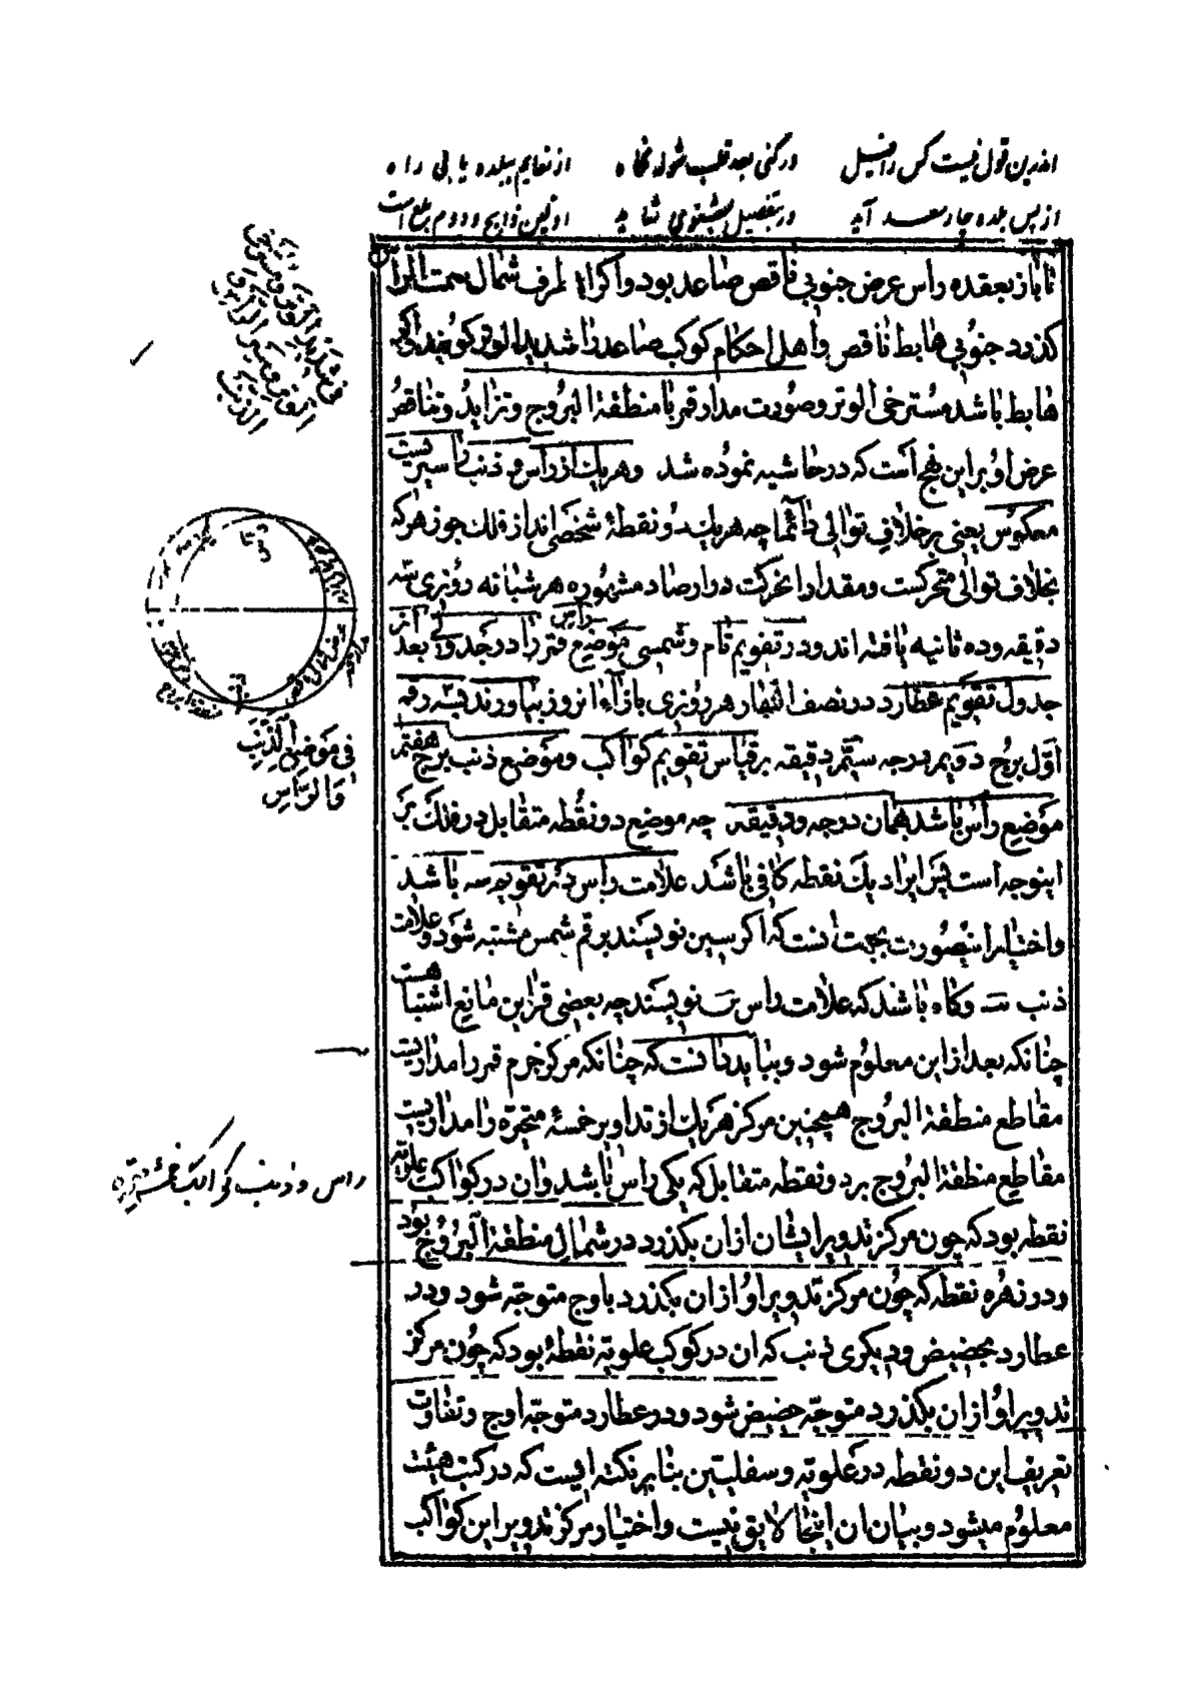 اندرین قول نیست کس را قیل
در کنی بعد قلب شوله نگاه
از نعایم ببلده یابی راه
از پس بلده چار سعد آید
اولین ذابح و دوم بلع است
تا باز بعقده راس عرض جنوبی ناقص صاعد بود و اکر از طرف شمال سمت الراس
کذرد جنوبی هابط ناقص و اهل احکام کوکب صاعد را شدید الوتر کویند و اکر
هابط باشد مسترخی الوتر و صورت مدار قمر با منطقة البروج و تزاید و تناقص
عرض او بر این نهج است که در حاشیه نموده شد و هر یک از راس و ذنب را سیریست
معکوس یعنی بر خلاف توالی دائما چه هر یک دو نقطهٔ شخصی اند از فلک جوزهر که
بخلاف توالی متحرکست و مقدار این حرکت در ارصاد مشهوره هر شبانه روزی سه
دقیقه و ده ثانیه یافته اند و در تقویم تام و شمسی موضع راس را در جدولی بعد از
جدول تقویم عطارد در نصف النهار هر روزی بازآء انروز بیاورند بسه رقم
اول برج دویم درجه سیم دقیقه بر قیاس تقویم کواکب و موضع ذنب برج هفتم
موضع راس باشد بهمان درجه و دقیقه چه موضع دو نقطه متقابل در فلک بر
اینوجه است پس ایراد یک نقطه کافی باشد علامت راس در تقویم سه باشد
و اختیار اینصورت بجهت انست که اکر بسین نویسند برقم شمس مشتبه شود و علامت
ذنب و کاه باشد که علامت راس نویسند چه بعضی قراین مانع اشتباه هست
چنانکه بعد از این معلوم شود و بباید دانست که چنانکه مرکز جرم قمر را مداریست
مقاطع منطقة البروج همچنین مرکز هر یک از تداویر خمسهٔ متحیره را مداریست
مقاطع منطقة البروج بر دو نقطه متقابل که یکی راس باشد و ان در کواکب علویه
نقطه بود که چون مرکز تدویر ایشان از ان بکذرد در شمال منطقة البروج بود
و در زهره نقطه که چون مرکز تدویر او از ان بکذرد باوج متوجه شود و در
عطارد بحضیض و دیکری ذنب که ان در کوکب علویه نقطهٔ بود که چون مرکز
تدویر او از ان بکذرد متوجه حضیض شود و در عطارد متوجه اوج و تفاوت
تعریف این دو نقطه در علویه و سفلیین بنا بر نکته ایست که در کتب هیئت
معلوم میشود و بیان ان اینجا لایق نیست و اختیار مرکز تدویر این کواکب
فی موضع الذنب
و الراس
راس و ذنب کواکب خمسه متحیره